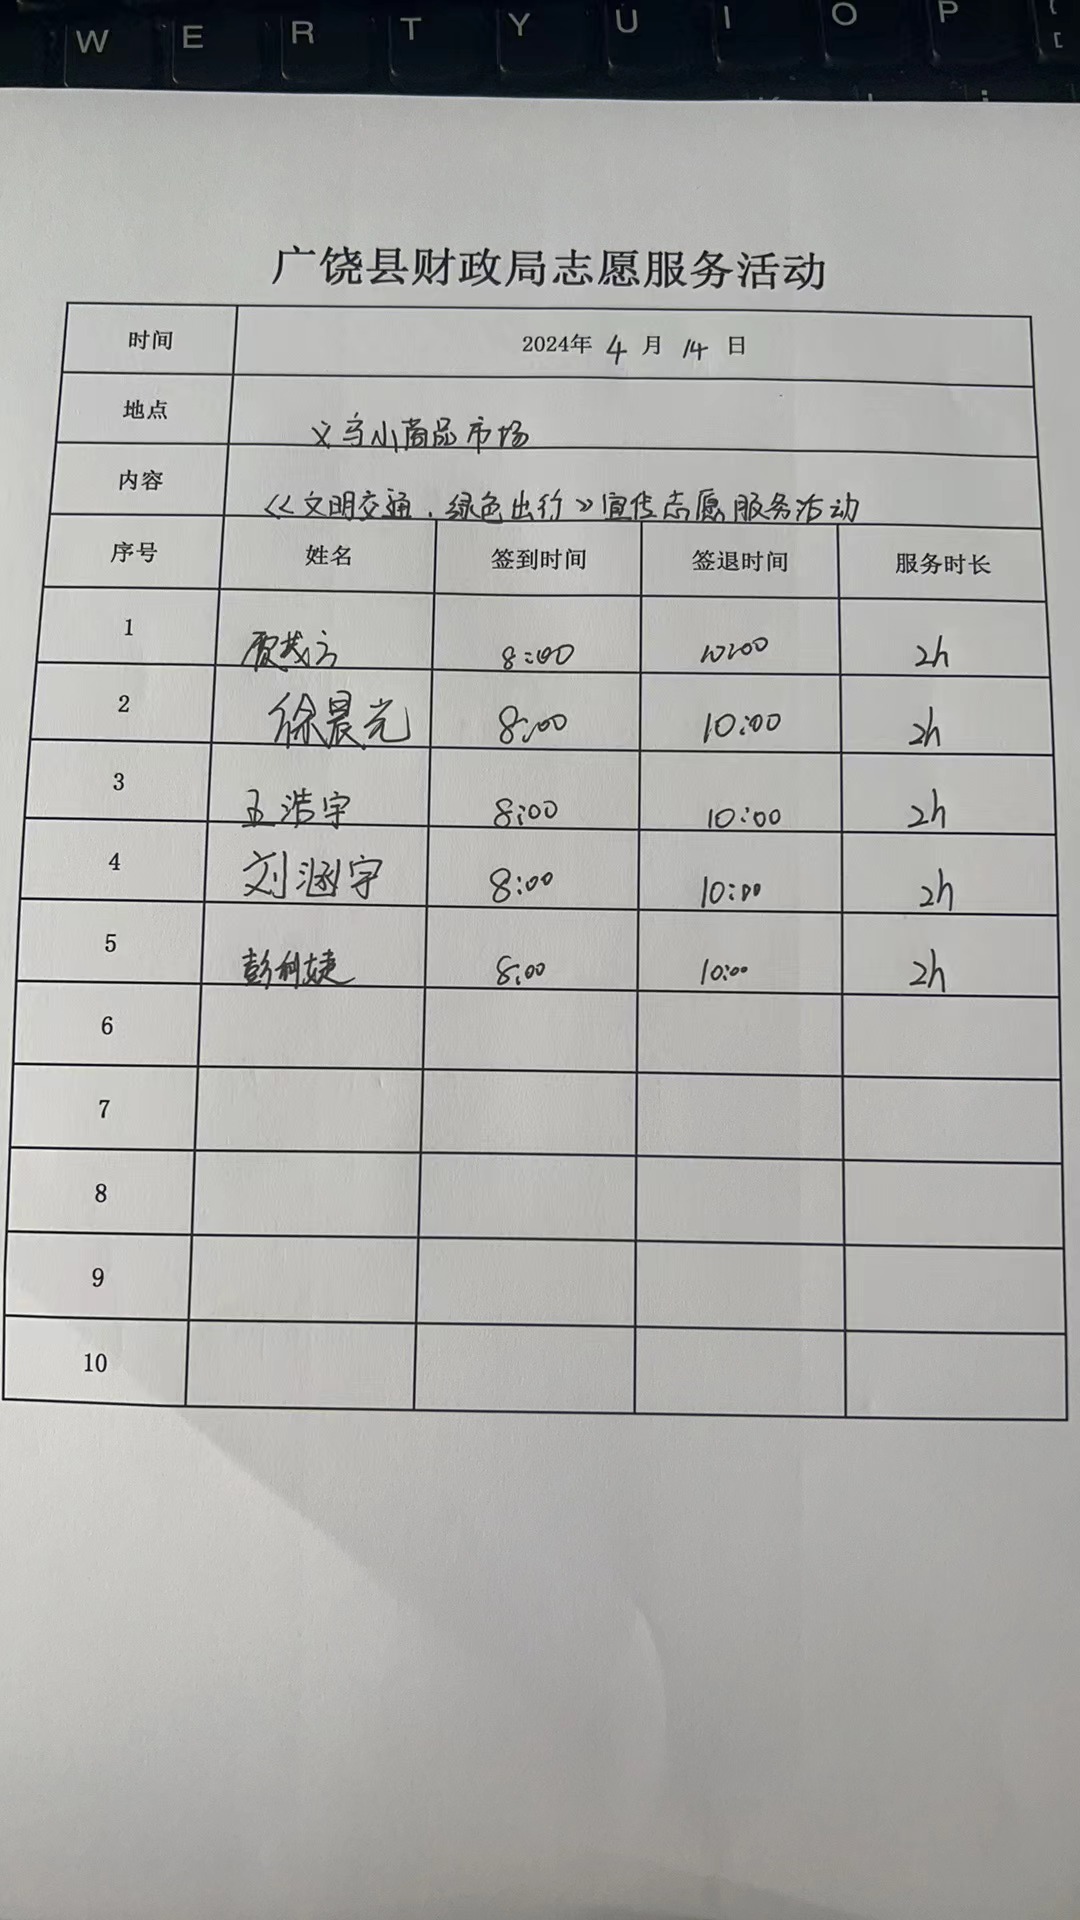 W E R T Y U I O P [
广饶县财政局志愿服务活动
时间 2024年 4 月 14 日
地点 义乌小商品市场
内容 《文明交通，绿色出行》宣传志愿服务活动
序号 姓名 签到时间 签退时间 服务时长
1 8:00 10:00 2h
2 徐晨光 8:00 10:00 2h
3 王浩宇 8:00 10:00 2h
4 刘涵宇 8:00 10:00 2h
5 彭利婕 8:00 10:00 2h
6
7
8
9
10